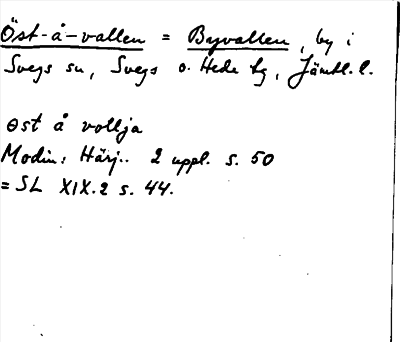 Öst-å-vallen = Byvallen, by i
Svegs sn, Svegs o. Hede tg, Jämtl. l.
Øst å vollja
Modin: Härj.. 2 uppl. s. 50
= SL XIX.2 s. 44.